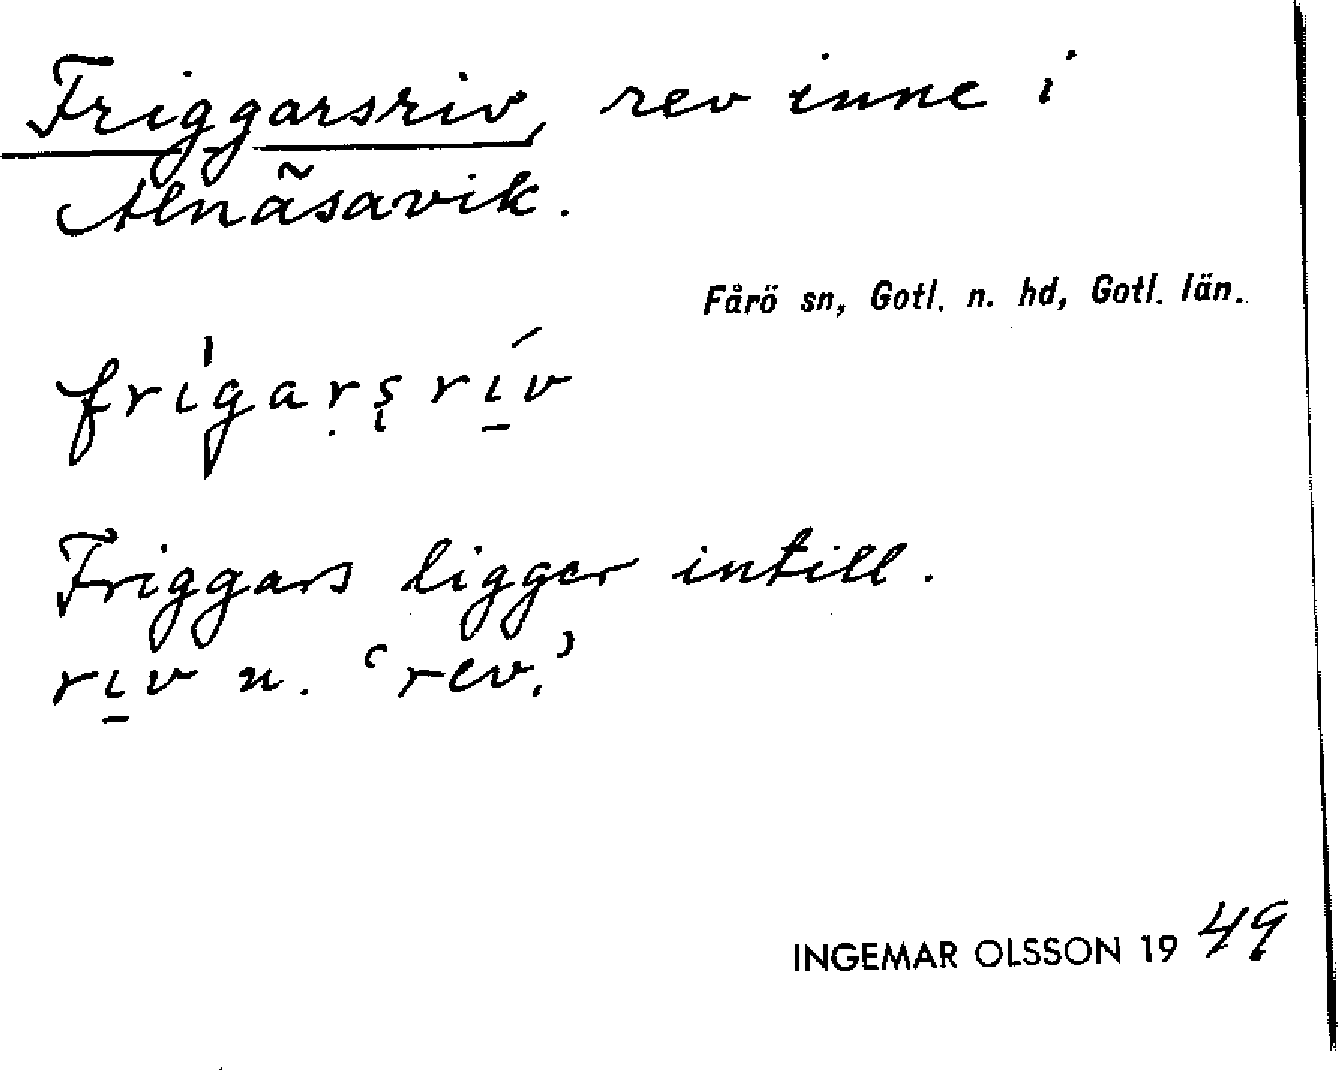 Friggarsriv, rev inne i
Alnäsavik.
Fårö sn, Gotl. n. hd, Gotl. län.
frigarsriv
Friggars ligger intill.
riv n. 'rev.'
INGEMAR OLSSON 1949